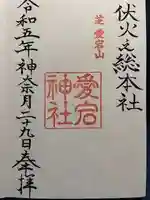 伏火之総本社
芝 愛宕山
愛宕
神社
令和五年神奈月二十九日奉拝